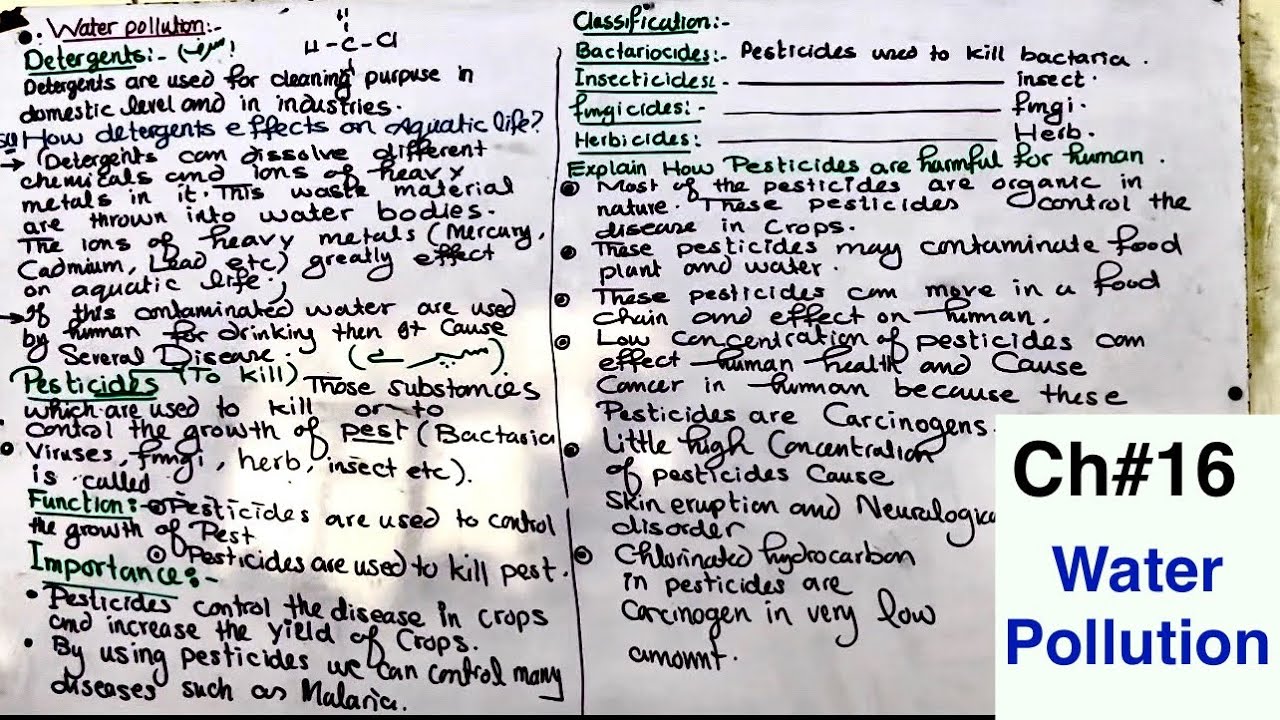 Water pollution:-
H
H-C-Cl
Detergents:- (سرف)
Detergents are used for cleaning purpuse in
domestic level and in industries.
SQ How detergents effects on Aquatic life?
→ Detergents can dissolve different
chemicals and ions of heavy
metals in it. This waste material
are thrown into water bodies.
The ions of heavy metals (Mercury,
Cadmium, Lead etc) greatly effect
on aquatic life.
→ If this contaminated water are used
by human for drinking then it Cause
Several Disease.
Pesticides (To kill) Those substances
which are used to kill or to
control the growth of pest (Bactaria
Viruses, fungi, herb, insect etc).
is called
Function:- Pesticides are used to control
the growth of Pest
Pesticides are used to kill pest.
Importance:-
• Pesticides control the disease in crops
and increase the yield of Crops.
• By using pesticides we can control many
diseases such as Malaria.
Classification:-
Bactariocides:- Pesticides used to kill bactaria.
Insecticides:- ———— insect.
fungicides:- ———— fungi.
Herbicides: ———— Herb.
Explain How Pesticides are harmful for human.
Most of the pesticides are organic in
nature. These pesticides control the
disease in Crops.
These pesticides may contaminate food
plant and water.
These pesticides can move in a food
chain and effect on human.
Low concentration of pesticides can
effect human health and Cause
Cancer in human because these
Pesticides are Carcinogens.
Little high Concentration
of pesticides Cause
Skin eruption and
disorder
Chlorinated hydrocarbon
in pesticides are
Carcinogen in very low
amount.
Ch#16
Water
Pollution